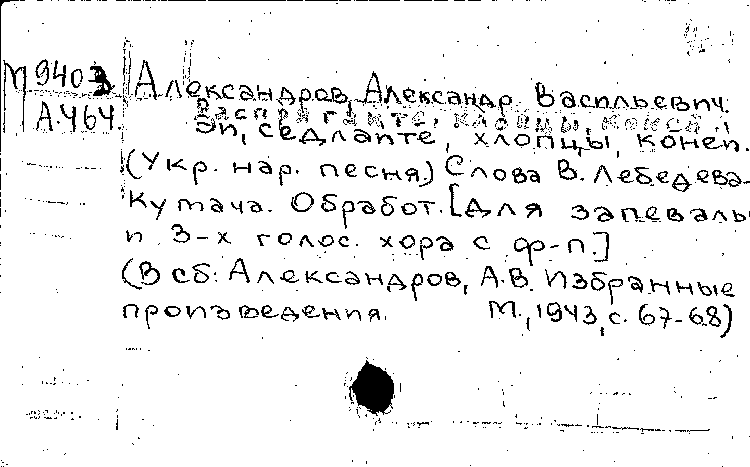 М940з Александров, Александр Васильевич.
А.464 Распрягайте, хлопцы, коней
Эй, седлайте, хлопцы, коней.
(Укр. нар. песня.) Слова В. Лебедева-
Кумача. Обработ. [для запевалы
и 3-х голос. хора с ф-п]
(В сб: Александров, А.В. Избранные
произведения. М., 1943, с. 67-68)